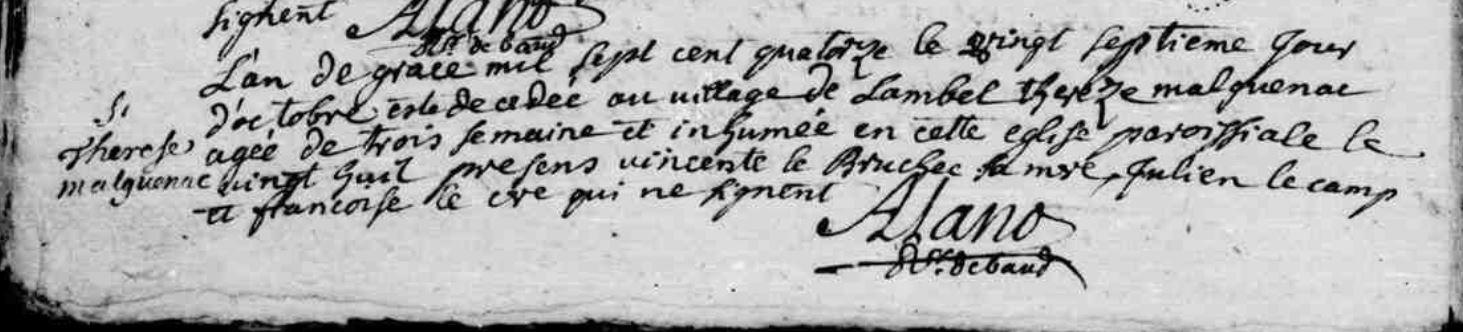 signent Alano
Rr. de baud
L'an de grace mil sept cent quatorze le vingt septieme jour
d'octobre este decedee au village de Lambelthereze malquenac
S.
Therese agée de trois semaine et inhumée en cette eglise paroissiale le
malguenac vingt huit presens vincente le Bruchec sa mre, Julien le camp
et francoise le cre qui ne signent
Alano
Rr. de baud